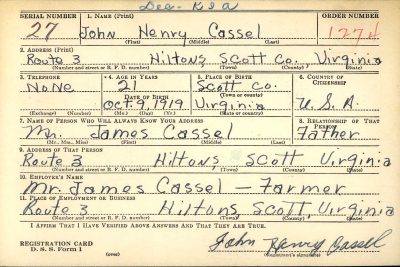 Dec- KIA
SERIAL NUMBER 1. NAME (Print) ORDER NUMBER
27 John Henry Cassel 1274
(First) (Middle) (Last)
2. ADDRESS (Print)
Route 3 Hiltons Scott Co. Virginia
(Number and street or R. F. D. number) (Town) (County) (State)
3. TELEPHONE 4. AGE IN YEARS 5. PLACE OF BIRTH 6. COUNTRY OF CITIZENSHIP
None 21 Scott Co.
DATE OF BIRTH (Town or county)
Oct. 9, 1919 Virginia U.S.A.
(Exchange) (Number) (Mo.) (Day) (Yr.) (State or country)
7. NAME OF PERSON WHO WILL ALWAYS KNOW YOUR ADDRESS 8. RELATIONSHIP OF THAT PERSON
Mr. James Cassel Father
(Mr., Mrs., Miss) (First) (Middle) (Last)
9. ADDRESS OF THAT PERSON
Route 3 Hiltons Scott Virginia
(Number and street or R. F. D. number) (Town) (County) (State)
10. EMPLOYER'S NAME
Mr. James Cassel - Farmer
11. PLACE OF EMPLOYMENT OR BUSINESS
Route 3 Hiltons Scott, Virginia
(Number and street or R. F. D. number) (Town) (County) (State)
I AFFIRM THAT I HAVE VERIFIED ABOVE ANSWERS AND THAT THEY ARE TRUE.
REGISTRATION CARD
D. S. S. Form 1 (over) John Henry Cassel
(Registrant's signature)